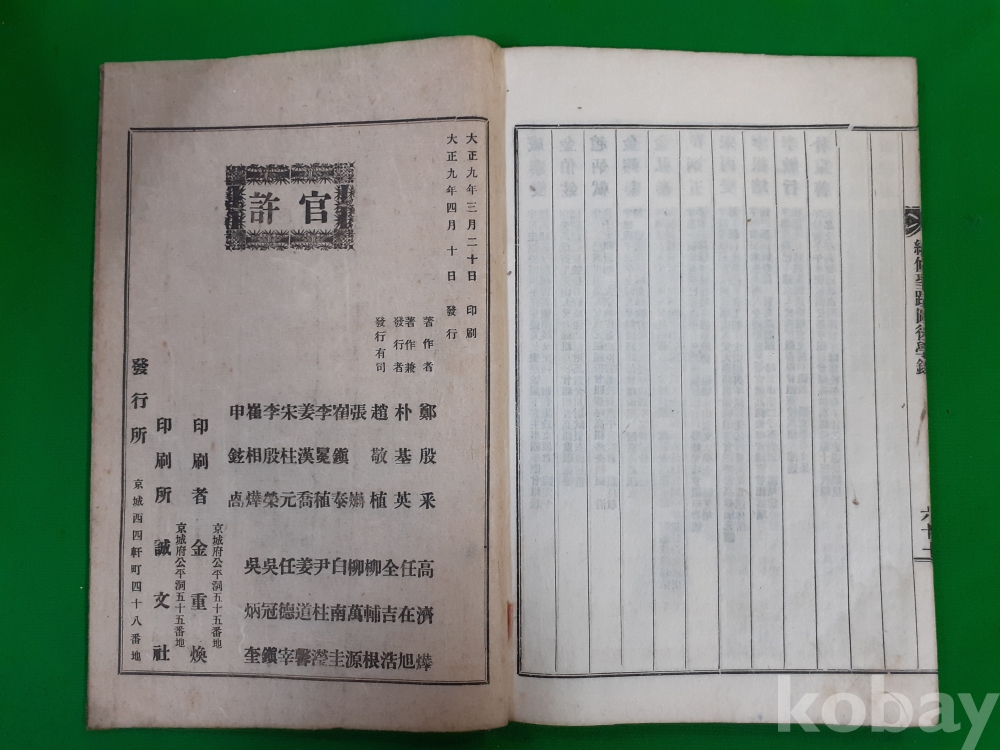 續修聖蹟圖後學錄
六十二
大正九年三月二十日 印刷
大正九年四月十日 發行
官許
著作者
著作兼
發行者
發行有司
鄭殷采
朴基英
趙敬植
張
崔鎭泰
李冕植
姜漢喬
宋柱元
李殷榮
崔相燁
申鉉
高濟燁
任在旭
全吉浩
柳輔根
柳萬源
白南圭
尹柱瀅
姜道馨
任德宰
吳冠鎭
吳炳奎
京城府公平洞五十五番地
印刷者 金重煥
京城府公平洞五十五番地
印刷所 誠文社
發行所 京城西四軒町四十八番地
kobay